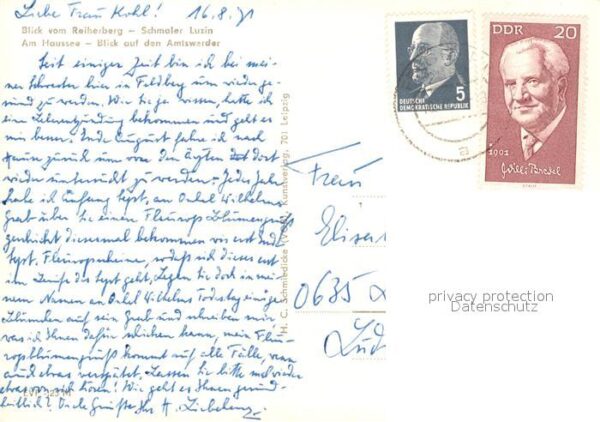 Liebe Frau Kohl! 16.8.71
Blick vom Reiherberg – Schmaler Luzin
Am Haussee – Blick auf den Amtswerder
Seit einiger Zeit bin ich bei mei-
ner Schwester hier in Feldberg um wieder ge-
sund zu werden. Wie Sie ja wissen, hatte ich
eine Leberentzündung bekommen und geht es
mir besser. Ende August fahre ich nach
zurück um von den Ärzten dort
wieder untersucht zu werden. – Jedes Jahr
habe ich Anfang Sept. an Onkel Wilhelms
Grab über Sie einen Fleurop Blumengruß
geschickt diesesmal bekommen wir erst
Sept. Fleuropscheine, sodaß sich dieses erst
im Laufe des Sept geht, Legen Sie doch in mei-
nem Namen an Onkel Wilhelms Todestag einige
Blümchen auf sein Grab und schreiben mir
was ich Ihnen dafür schicken kann, mein Fleu-
ropsblumengruß kommt auf alle Fälle, wenn
auch etwas verspätet. Lassen Sie bitte mal wieder
etwas von sich hören! Wie geht es Ihnen gesund-
heitlich? Viele Grüße Ihr H.
H. C. Schmiedicke Kunstverlag, 701 Leipzig
5
DEUTSCHE
DEMOKRATISCHE REPUBLIK
DDR 20
1901
Frau
0635
privacy protection
Datenschutz